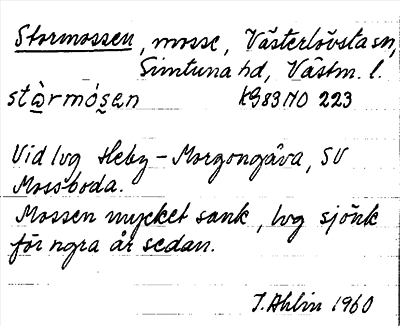 Stormossen, mosse, Västerlövsta sn,
Simtuna hd, Västm. l.
stòrmósen KB83NO 223
Vid lvg Heby - Morgongåva, SV
Mossboda.
Mossen mycket sank, lvg sjönk
för ngra år sedan.
I. Ahlin 1960